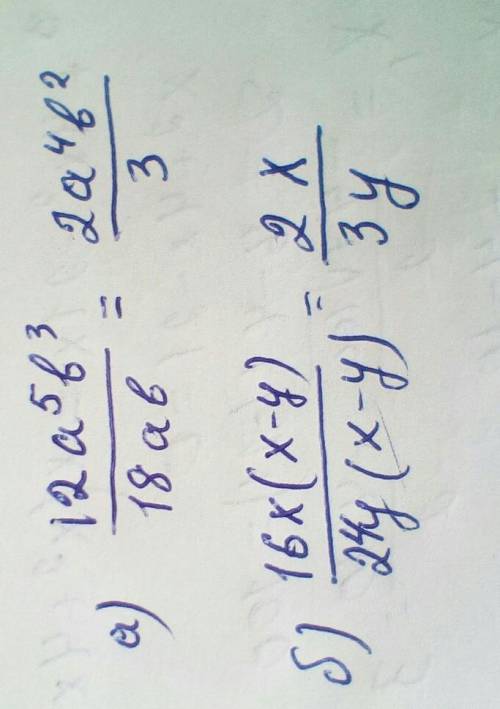 а) 12a⁵b³/18ab = 2a⁴b²/3
б) 16x(x-y)/24y(x-y) = 2x/3y